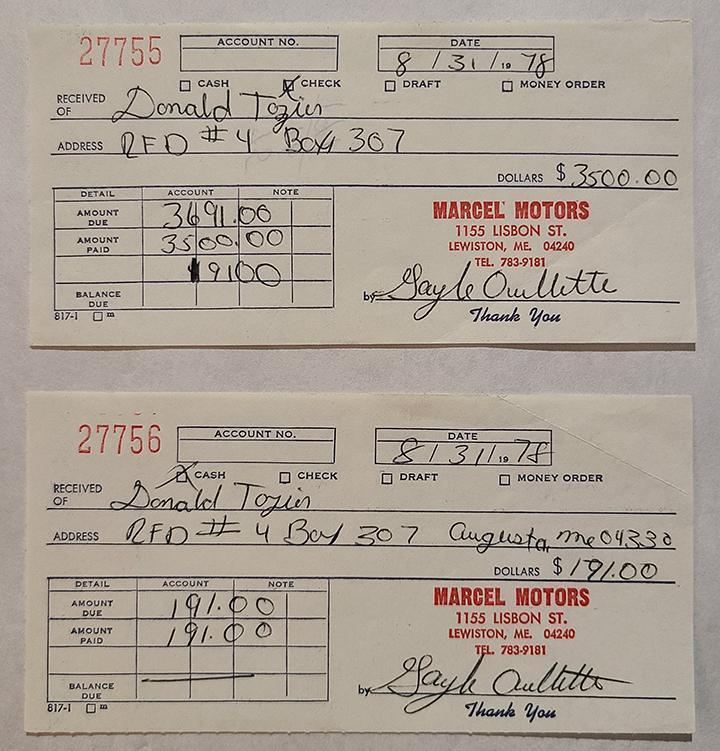 27755
ACCOUNT NO.
DATE
8/31/19 78
CASH CHECK DRAFT MONEY ORDER
RECEIVED OF Donald Tozier
ADDRESS RFD # 4 Box 307
DOLLARS $3500.00
DETAIL ACCOUNT NOTE
AMOUNT DUE 3691.00
AMOUNT PAID 3500.00
191.00
BALANCE DUE
817-1 m
MARCEL MOTORS
1155 LISBON ST.
LEWISTON, ME. 04240
TEL. 783-9181
by Gayle Ouellette
Thank You
27756
ACCOUNT NO.
DATE
8/31/19 78
CASH CHECK DRAFT MONEY ORDER
RECEIVED OF Donald Tozier
ADDRESS RFD # 4 Box 307 Augusta, Me 04330
DOLLARS $191.00
DETAIL ACCOUNT NOTE
AMOUNT DUE 191.00
AMOUNT PAID 191.00
BALANCE DUE
817-1 m
MARCEL MOTORS
1155 LISBON ST.
LEWISTON, ME. 04240
TEL. 783-9181
by Gayle Ouellette
Thank You